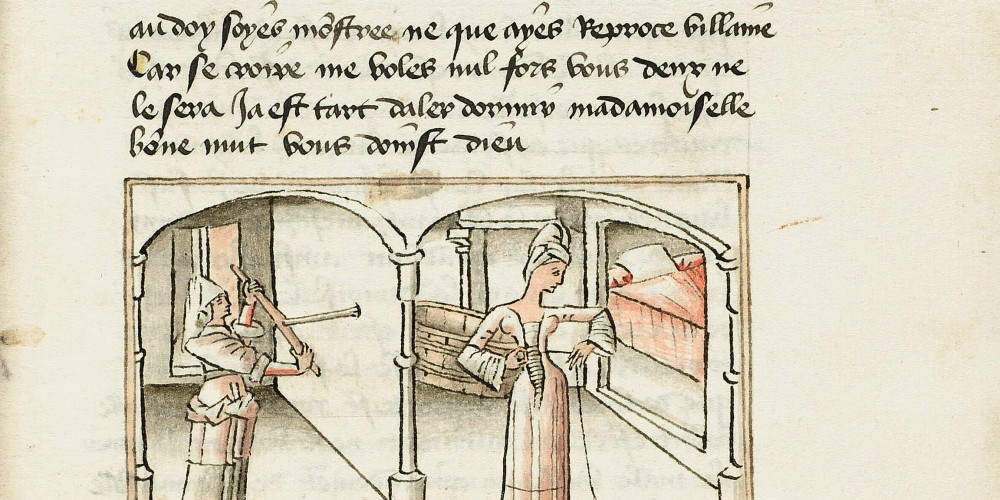 au doy soyés mōstree ne que ayés Reproce villaine
Car se croire me volés nul fors vous deux ne
le sera Ja est tart daler dormir madamoiselle
bōne nuit vous doinst dieu